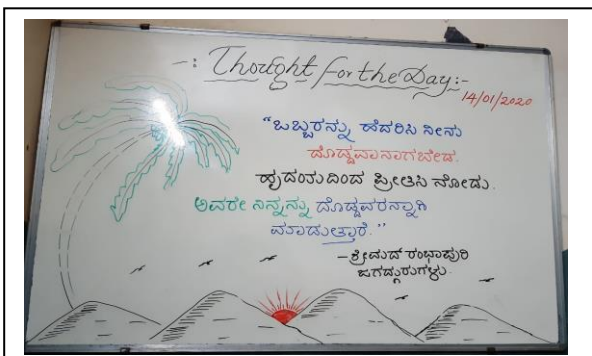 -: Thought for the Day:-
14/01/2020
"ಒಬ್ಬರನ್ನು ಹೆದರಿಸಿ ನೀನು
ದೊಡ್ಡವನಾಗಬೇಡ.
ಹೃದಯದಿಂದ ಪ್ರೀತಿಸಿ ನೋಡು.
ಅವರೇ ನಿನ್ನನ್ನು ದೊಡ್ಡವರನ್ನಾಗಿ
ಮಾಡುತ್ತಾರೆ."
- ಶ್ರೀಮದ್ ರಂಭಾಪುರಿ
ಜಗದ್ಗುರುಗಳು.